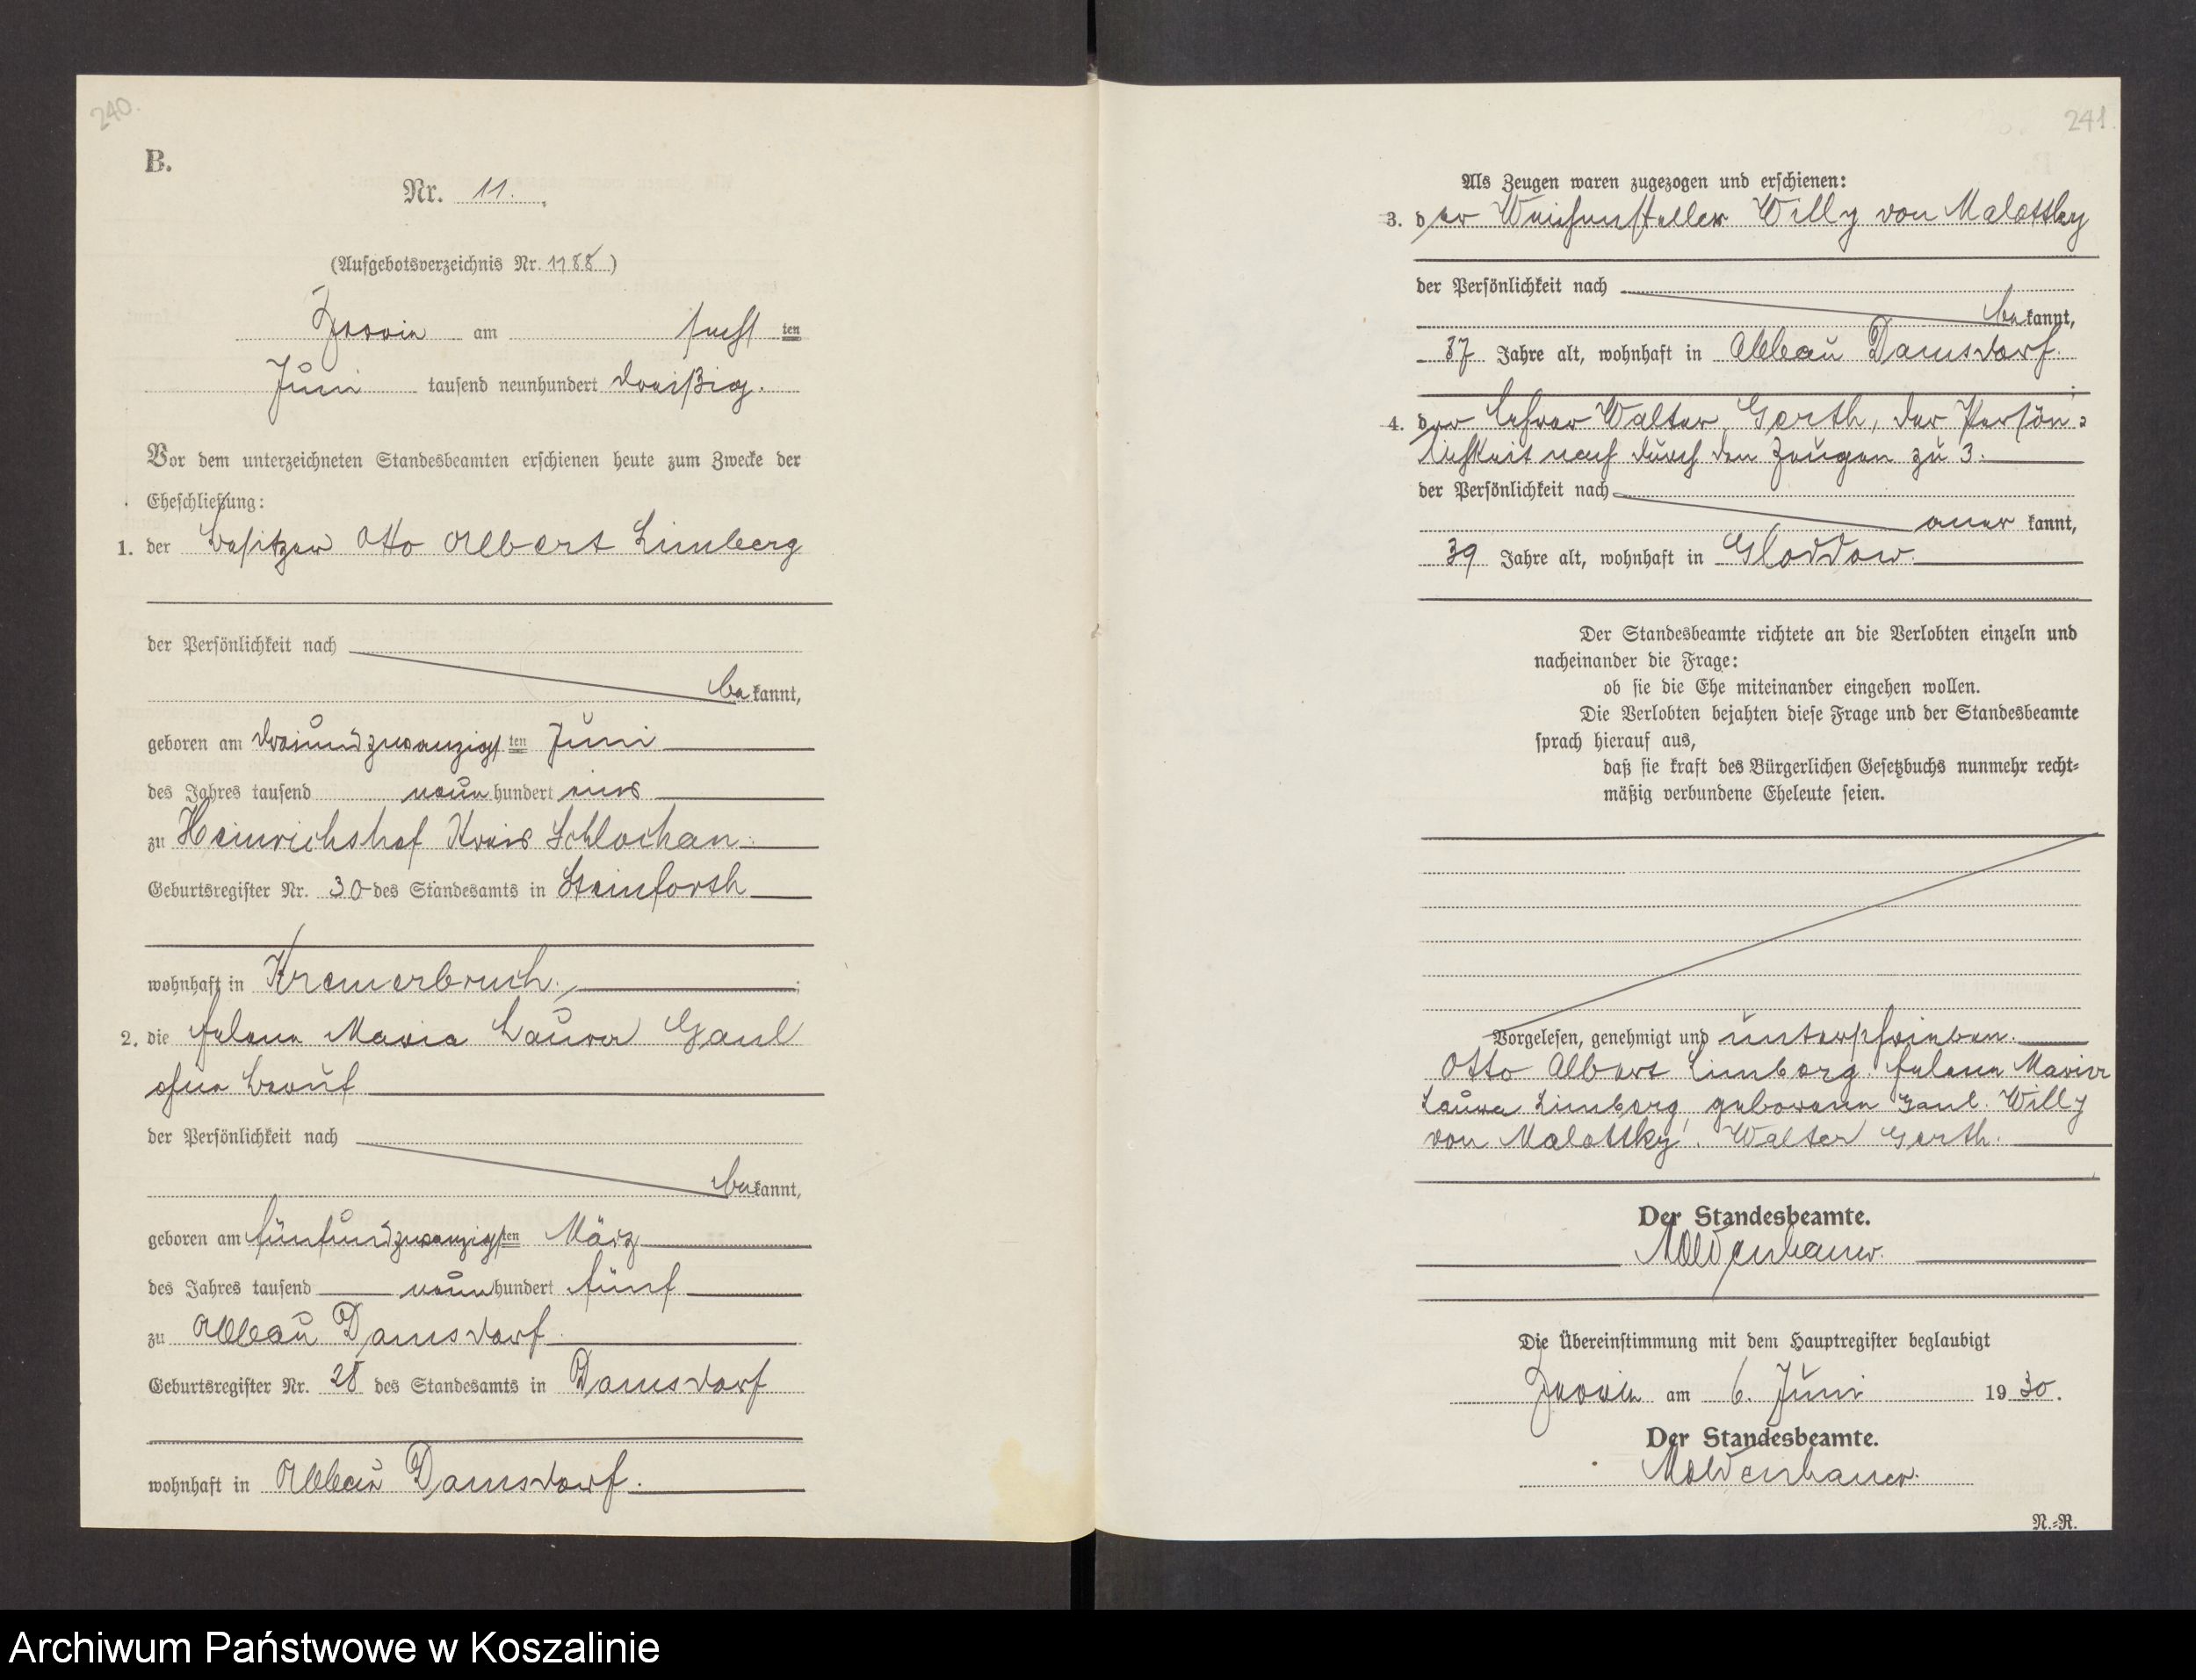 240.
B.
Nr. 11.
(Aufgebotsverzeichnis Nr. 1188)
am sechsten
Juni tausend neunhundert dreißig.
Vor dem unterzeichneten Standesbeamten erschienen heute zum Zwecke der
Eheschließung:
1. der Besitzer Otto Albert Limberg
der Persönlichkeit nach
bekannt,
geboren am dreiundzwanzigsten Juni
des Jahres tausend neunhundert eins
zu Heinrichshof Kreis Schlochau
Geburtsregister Nr. 30 des Standesamts in Steinforth
wohnhaft in Kremerbruch.
2. die Helene Maria Laura Gaul
ohne Beruf
der Persönlichkeit nach
bekannt,
geboren am fünfundzwanzigsten März
des Jahres tausend neunhundert fünf
zu Abbau Damsdorf
Geburtsregister Nr. 28 des Standesamts in Damsdorf
wohnhaft in Abbau Damsdorf.
241.
Als Zeugen waren zugezogen und erschienen:
3. der Weichensteller Willy von Malottky
der Persönlichkeit nach
bekannt,
37 Jahre alt, wohnhaft in Abbau Damsdorf.
4. der Lehrer Walter Gerth, der Persön=
lichkeit nach durch den Zeugen zu 3.
der Persönlichkeit nach
anerkannt,
39 Jahre alt, wohnhaft in Gloddow.
Der Standesbeamte richtete an die Verlobten einzeln und
nacheinander die Frage:
ob sie die Ehe miteinander eingehen wollen.
Die Verlobten bejahten diese Frage und der Standesbeamte
sprach hierauf aus,
daß sie kraft des Bürgerlichen Gesetzbuchs nunmehr recht=
mäßig verbundene Eheleute seien.
Vorgelesen, genehmigt und unterschrieben.
Otto Albert Limberg. Helene Maria
Laura Limberg geborene Gaul. Willy
von Malottky. Walter Gerth.
Der Standesbeamte.
Moldenhauer.
Die Übereinstimmung mit dem Hauptregister beglaubigt
am 6. Juni 1930.
Der Standesbeamte.
Moldenhauer.
N.=R.
Archiwum Państwowe w Koszalinie